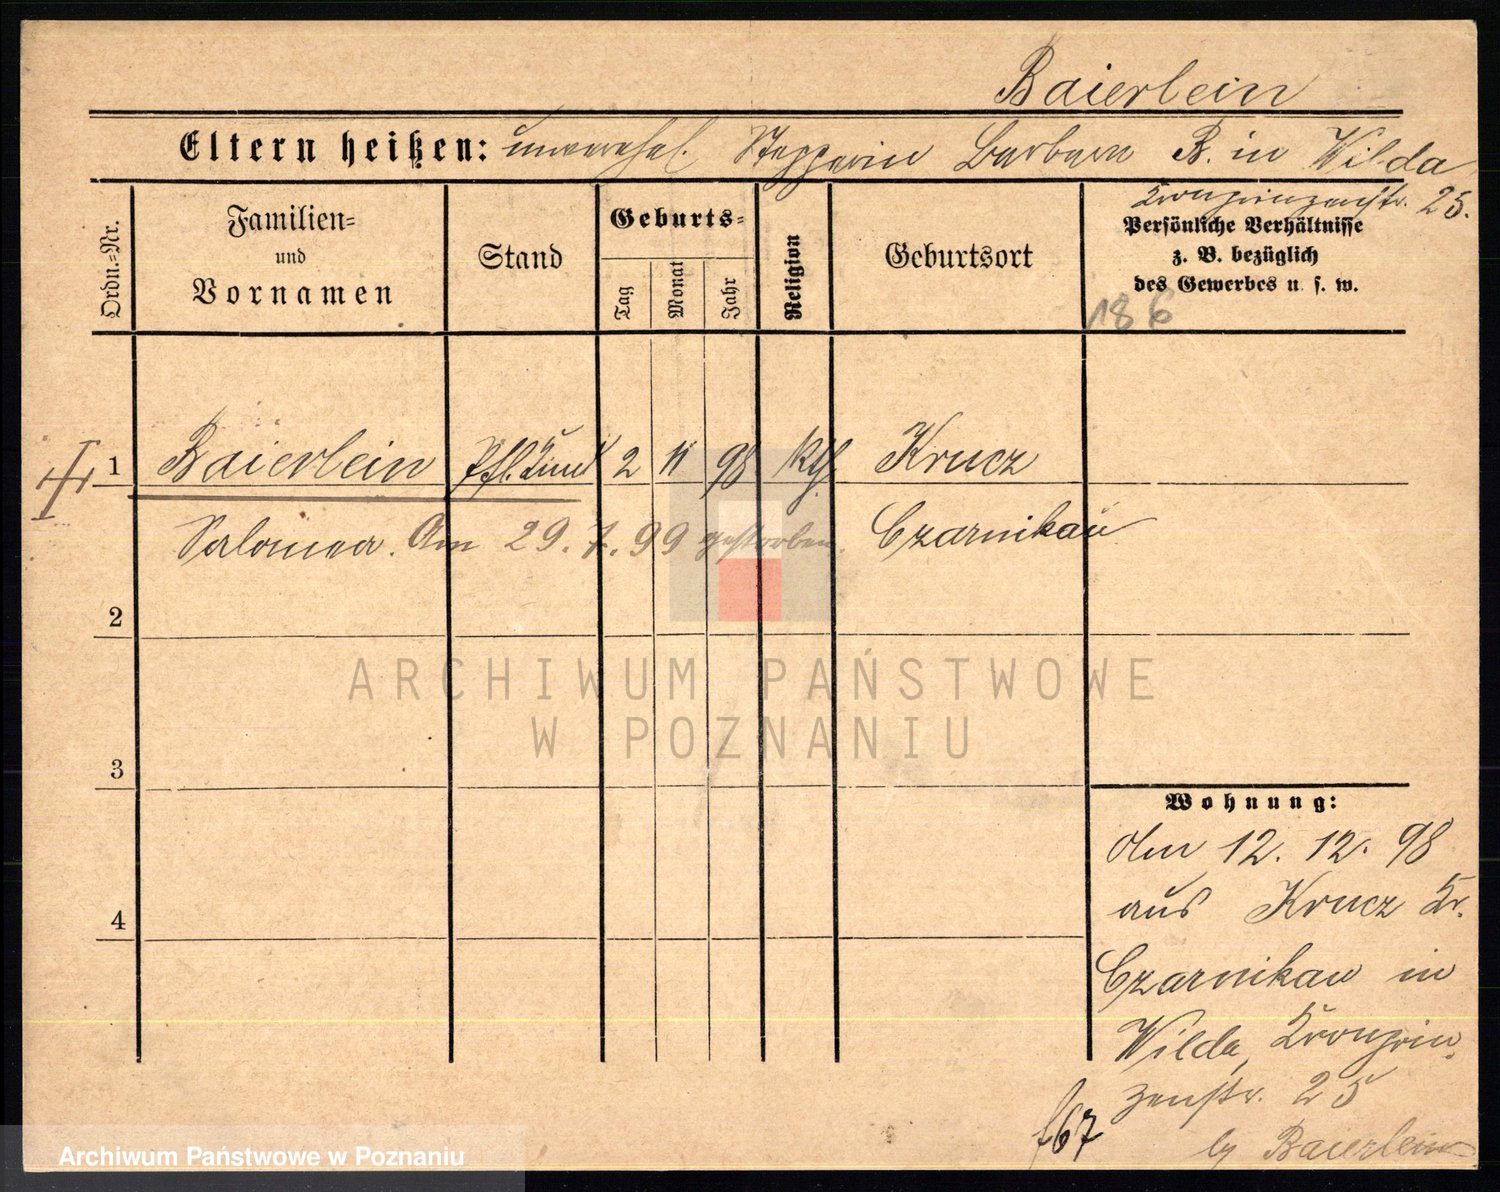 Baierlein
Eltern heißen: unverehel. Stepperin Barbara B. in Wilda,
Kronprinzenstr. 25.
Ordn.-Nr.
Familien-
und
Vornamen
Stand
Geburts-
Tag
Monat
Jahr
Religion
Geburtsort
Persönliche Verhältnisse
z. B. bezüglich
des Gewerbes u. s. w.
186
1 Baierlein Pfl. Kind 2 11 98 kth. Krucz
Salomea. Am 29. 7. 99 gestorben. Czarnikau
2
ARCHIWUM PAŃSTWOWE
W POZNANIU
3
4
Wohnung:
Am 12. 12. 98
aus Krucz Kr.
Czarnikau in
Wilda, Kronprin-
zenstr. 25
by Baierlein
f67
Archiwum Państwowe w Poznaniu